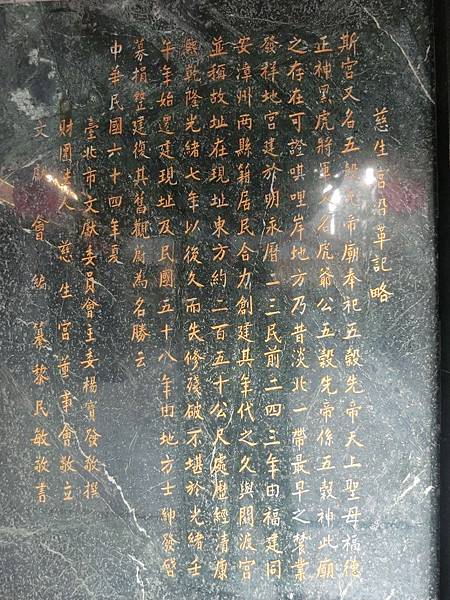 慈生宮沿革記略
斯宮又名五穀先帝廟奉祀五穀先帝天上聖母福德
正神黑虎將軍又名虎爺公五穀先帝係五穀神此廟
之存在可證唭哩岸地方乃昔淡北一帶最早之農業
發祥地宮建於明永曆二三民前二四三年由福建同
安漳州兩縣籍居民合力創建其年代之久與關渡宮
並稱故址在現址東方約二百五十公尺處歷經清康
熙乾隆光緒七年以後久而失修殘破不堪於光緒壬
午年始遷建現址及民國五十八年由地方士紳發啓
募捐整建復其舊觀蔚為名勝云
中華民國六十四年夏
臺北市文獻委員會主委楊寶發敬撰
財團法人慈生宮董事會敬立
文獻會編纂黎民敏敬書